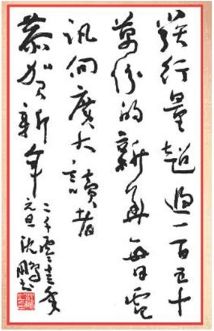 發行量超過一百五十
萬份的新華每日電
訊向廣大讀者
恭賀新年
二千零壹年
元旦沈鵬